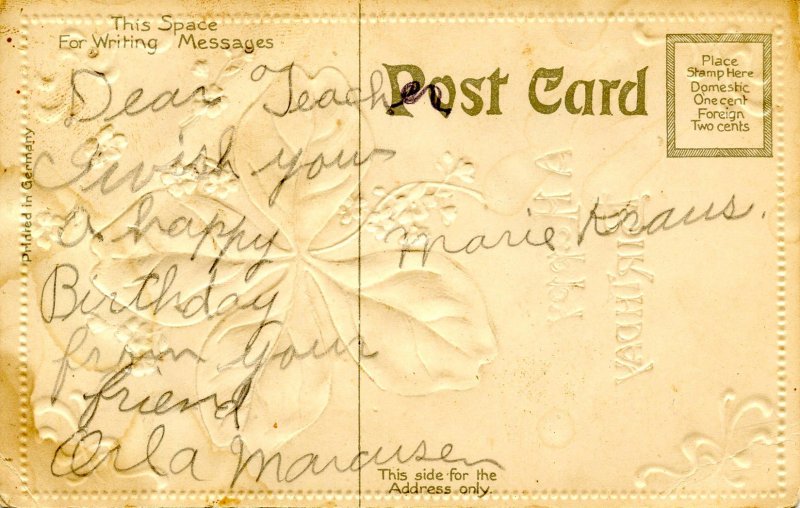 This Space
For Writing Messages
Dear Teacher
I wish your
a happy
Birthday
from your
friend
Orla Marcusen
Printed in Germany
Post Card
Place
Stamp Here
Domestic
One cent
Foreign
Two cents
Marie Kraus.
This side for the
Address only.
A HAPPY
BIRTHDAY